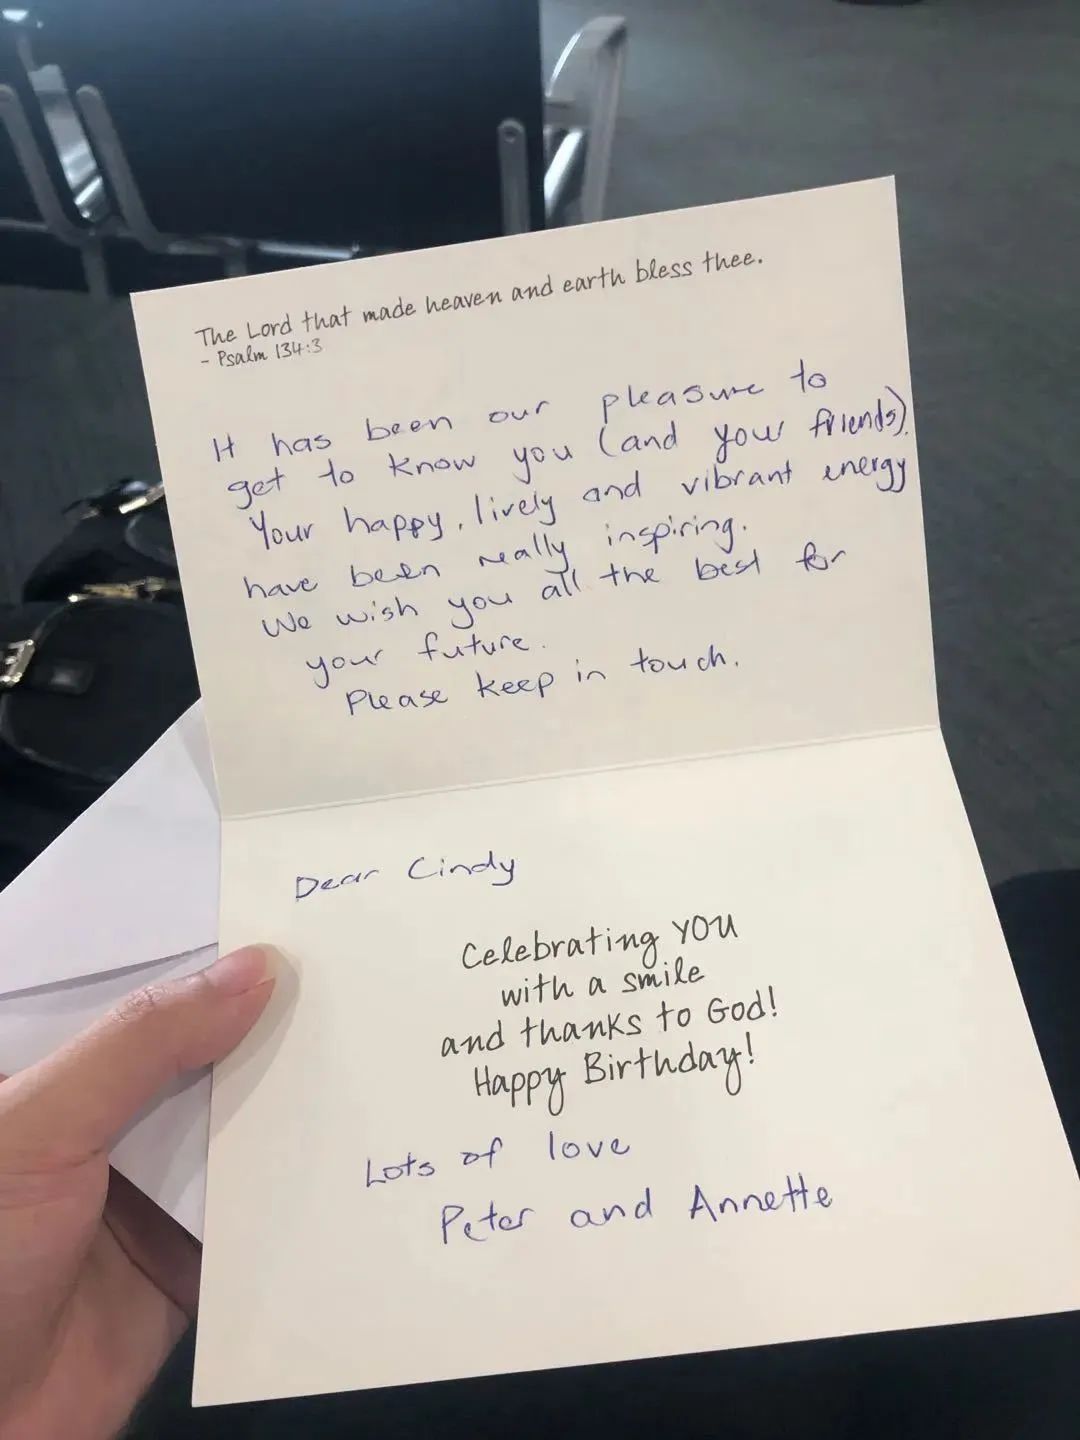 The Lord that made heaven and earth bless thee.
- Psalm 134:3
It has been our pleasure to
get to know you (and your friends).
Your happy, lively and vibrant energy
have been really inspiring.
We wish you all the best for
your future.
Please keep in touch.
Dear Cindy
Celebrating YOU
with a smile
and thanks to God!
Happy Birthday!
Lots of love
Peter and Annette